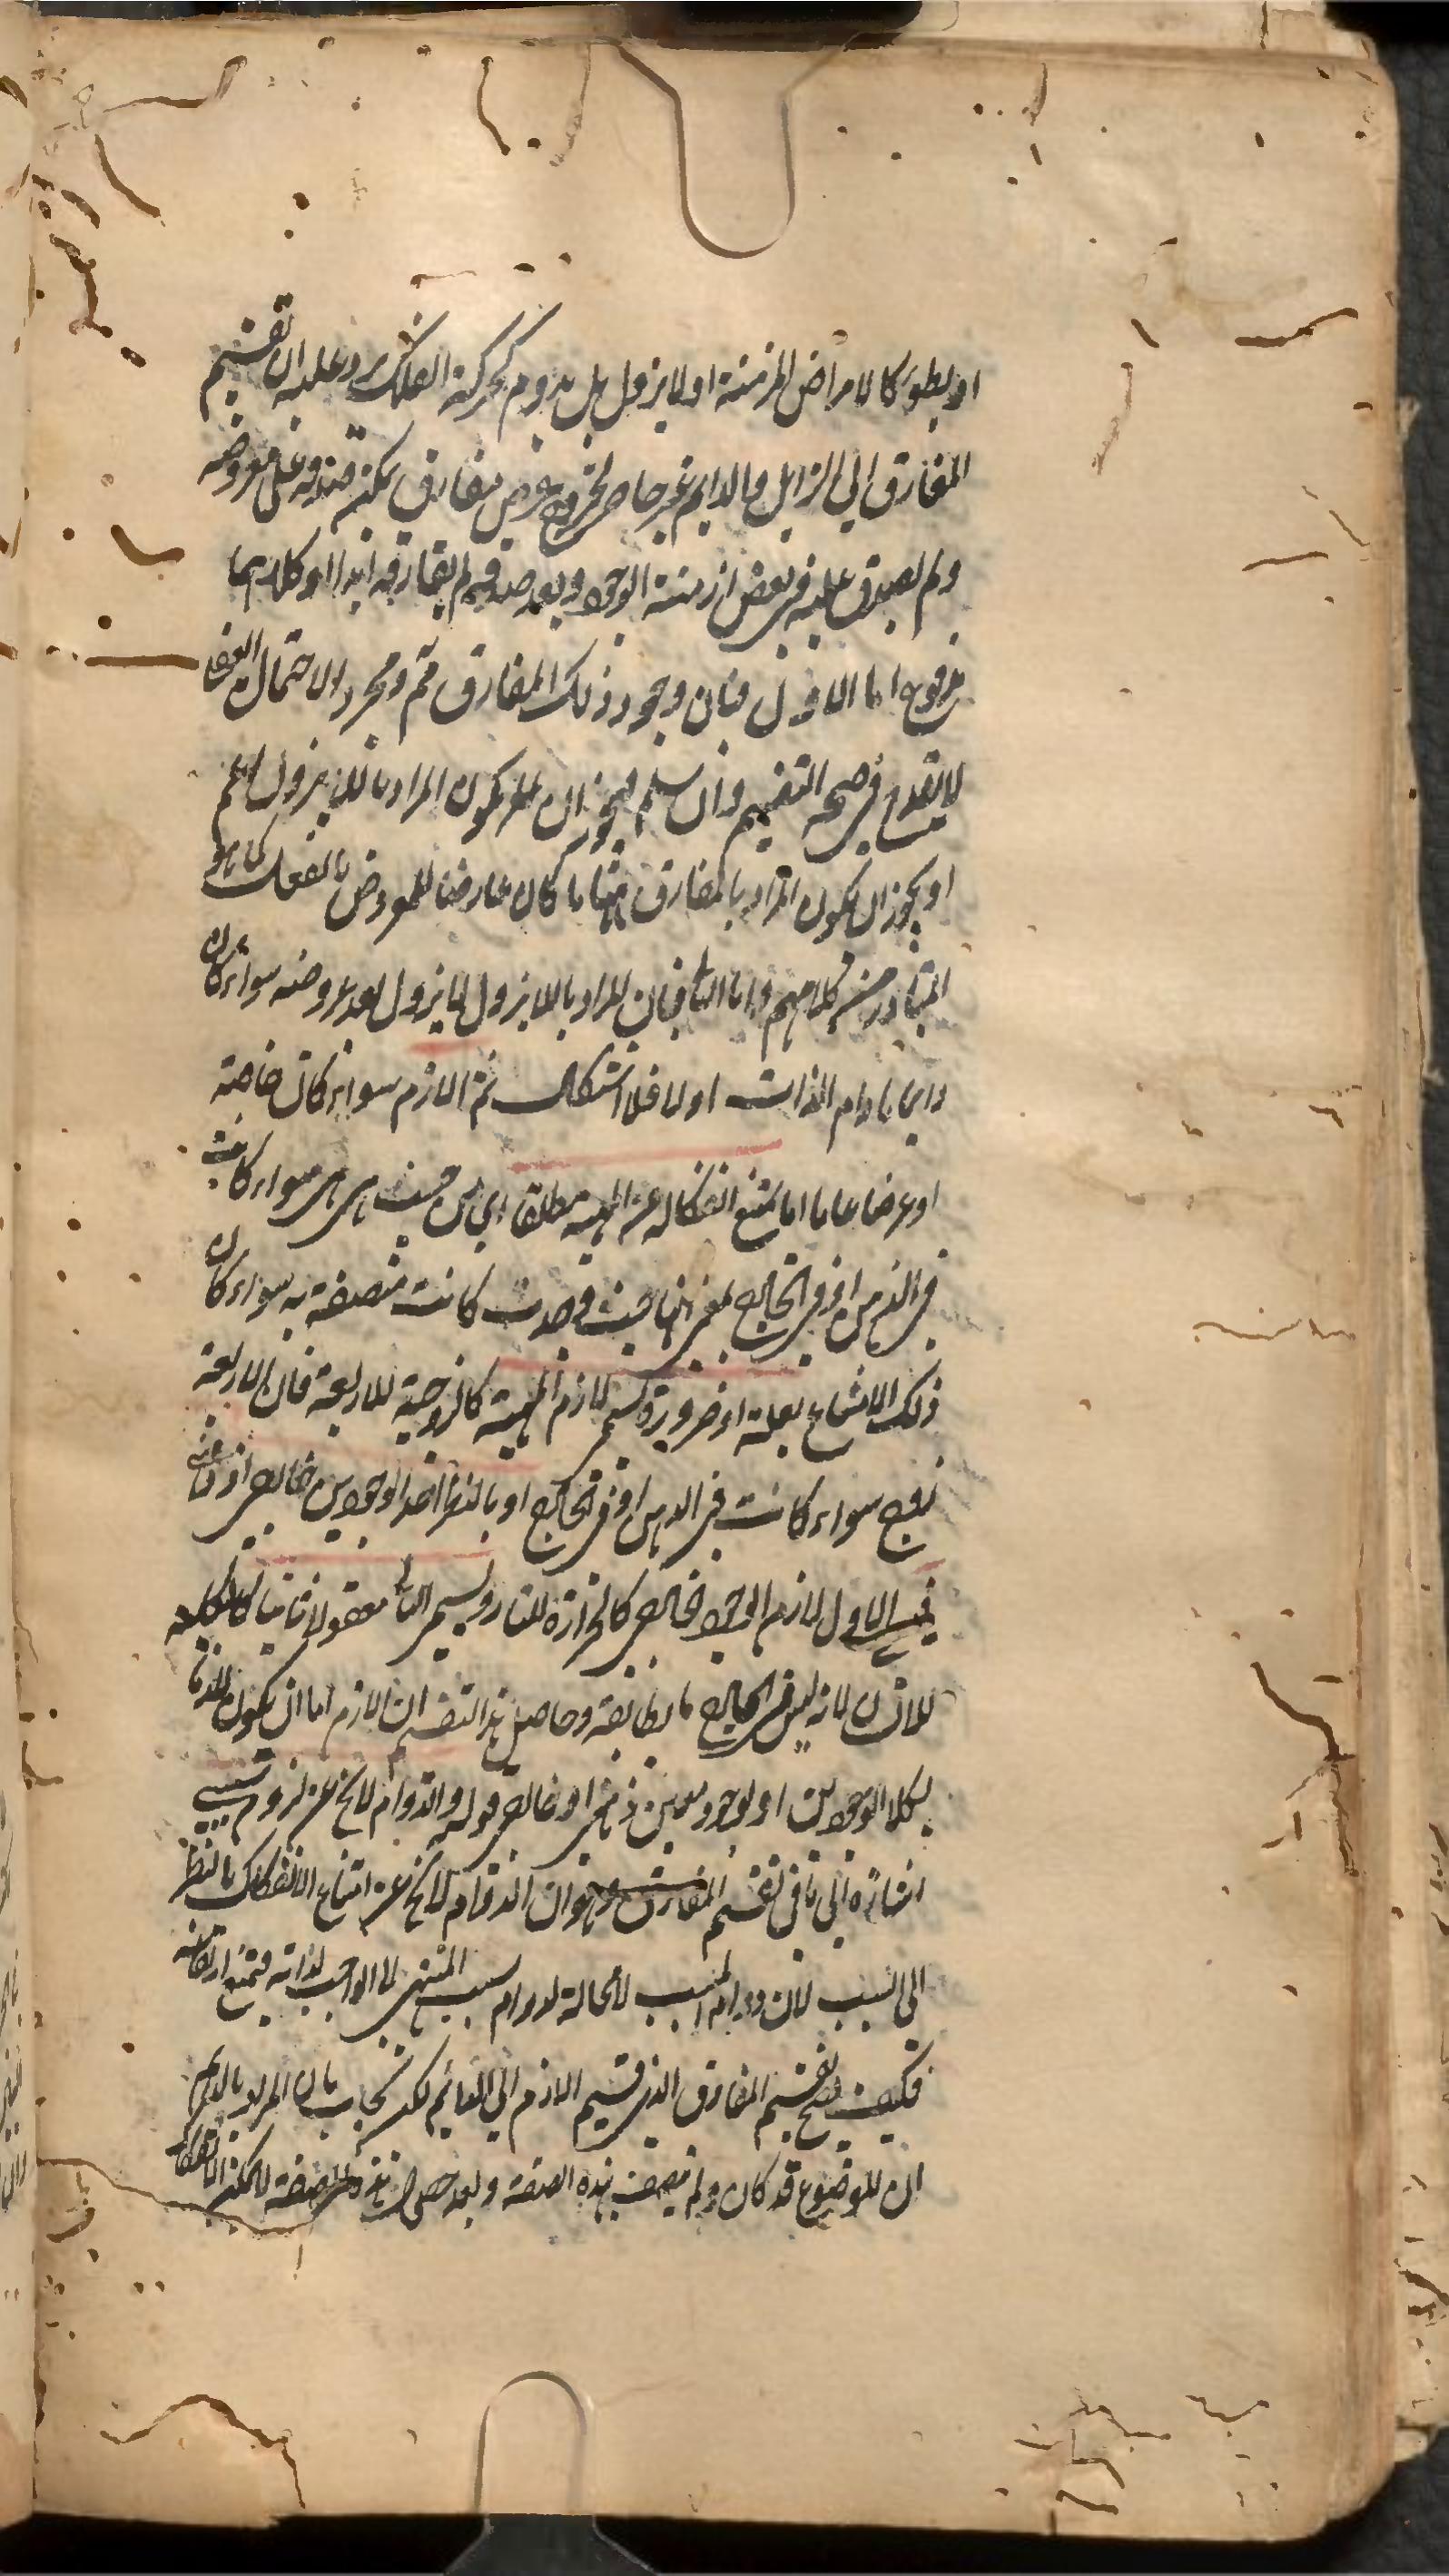 او بطوء كالامراض المزمنة او لا يزول بل يدوم كحركة الفلك يرد عليه ان تقسيم
المفارق الى الزايل والدايم غير حاصر لخروج عرض مفارق يمكن صدقه على معروضه
ولم يصدق عليه في بعض ازمنة الوجود وبعد صدقه لم يفارقه ابدا او كلاهما
مدفوع اما الاول فبان وجود ذلك المفارق ثم ومجرد الاحتمال العقلي
لا يقدح في صحة التقسيم وان سلم فيجوز ان يكون المراد بالذي يزول اعم
او يجوز ان يكون المراد بالمفارق ههنا ما كان عارضا للمعروض بالفعل كما هو
المتبادر من كلامهم واما الثاني فبان المراد بالا يزول لا يزول بعد عروضه سواء كان
دايما ما دام الذات او لا فلا اشكال ثم اللازم سواء كان خاصة
او عرضا عاما اما يمتنع انفكاكه عن المهية مطلقا اي من حيث هي هي سواء كانت
في الذهن او في الخارج بمعنى انها حيث وجدت كانت متصفة به سواء كان
ذلك الامتناع بعلة او ضرورة يسمى لازم المهية كالزوجية للاربعة فان الاربعة
زوج سواء كانت في الذهن او في الخارج او بالنظر احد الوجودين خارجي او ذهني
فيسمى الاول لازم الوجود الخارجي كالحرارة للنار ويسمى الثاني معقولا ثانيا كالكلية
للانسان لانه ليس في الخارج ما يطابقه وحاصل هذا التقسيم ان اللازم اما ان يكون لازما
بكلا الوجودين او بوجود معين ذهني او خارجي قوله والدوام لا يخ عن لزوم سببي
اشارة الى ما في تقسيم المفارق وهو ان الدوام لا يخ عن امتناع الانفكاك بالنظر
الى السبب لان دوام المسبب لا محالة لدوام سبب المنتهي الى الواجب لذاته فيمتنع ارتفاعه
فكيف يصح تقسيم المفارق الذي قسيم اللازم الى الدائم لكن يجاب بان المراد بالدائم
ان الموضوع قد كان ولم يتصف بهذه الصفة وبعد حصول هذه الصفة لا يمكن الانفكاك